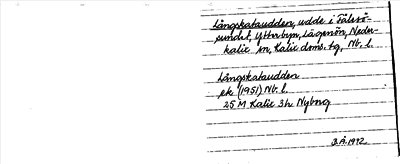 Långskataudden, udde i Sälssö-
sundet, Ytterbyn, Lägenön, Neder-
kalix sn, Kalix doms. tg, Nb. l.
Långskataudden
ek (1951) Nb. l.
25 M Kalix 3h Nyborg
B.Å. 1992